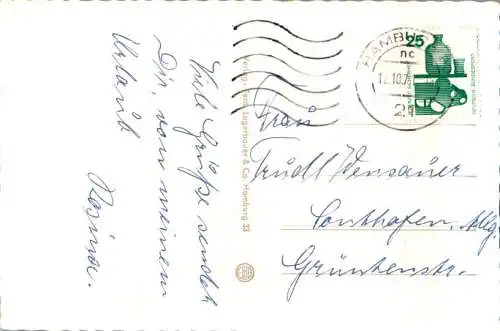 Viele Grüße sendet
Dir, von meinem
Urlaub
Rosina.
Verlag Ernst Lagerbauer & Co, Hamburg 33
HAMBU
12.10.7
2
25
DEUTSCHE BUNDESPOST
Frau
Trudl Wensauer
Sonthofen, Allg.
Grüntenstr.